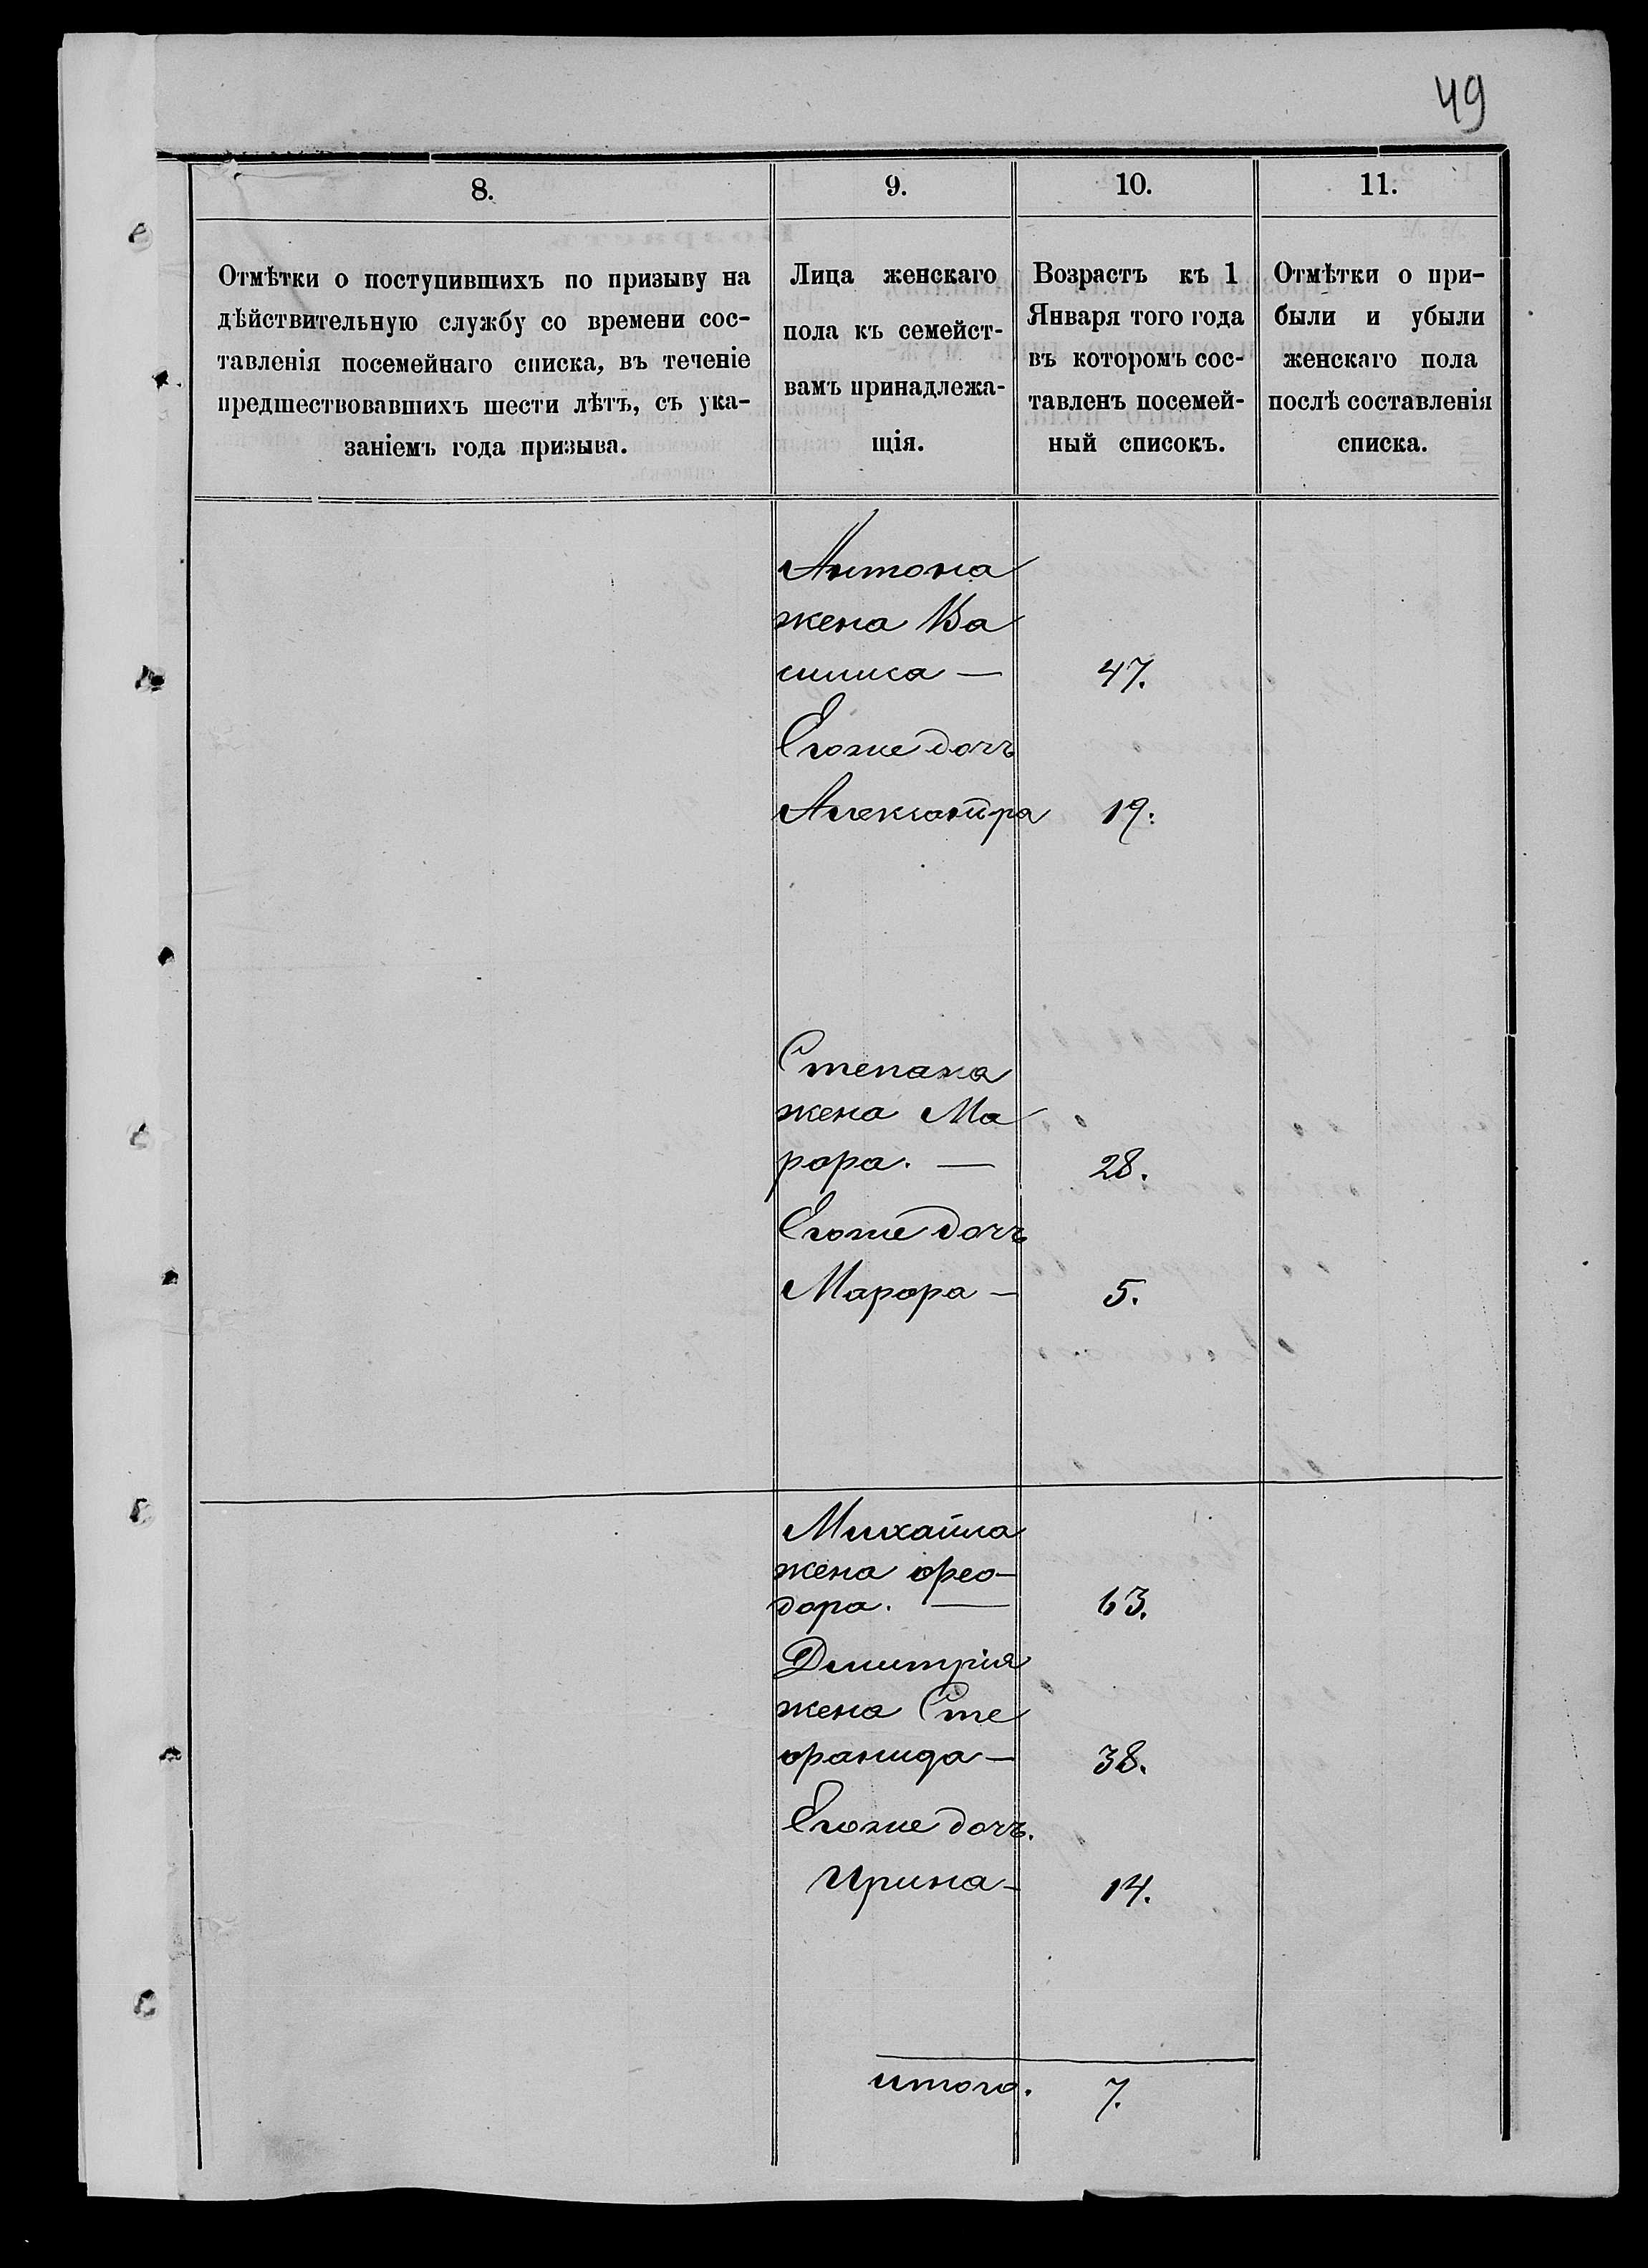 49
8.
Отмѣтки о поступившихъ по призыву на
дѣйствительную службу со времени сос-
тавленія посемейнаго списка, въ теченіе
предшествовавшихъ шести лѣтъ, съ ука-
заніемъ года призыва.
9.
Лица женскаго
пола къ семейст-
вамъ принадлежа-
щія.
10.
Возрастъ къ 1
Января того года
въ которомъ сос-
тавленъ посемей-
ный списокъ.
11.
Отмѣтки о при-
были и убыли
женскаго пола
послѣ составленія
списка.
Антона
жена Ва
силиса — 47.
Егоже дочь
Александра 19.
Степана
жена Ма
рфа. — 28.
Егоже дочь
Марфа — 5.
Михайла
жена Фео-
дора. — 63.
Димитрія
жена Сте
фанида — 38.
Егоже дочь.
Ирина - 14.
итого. 7.